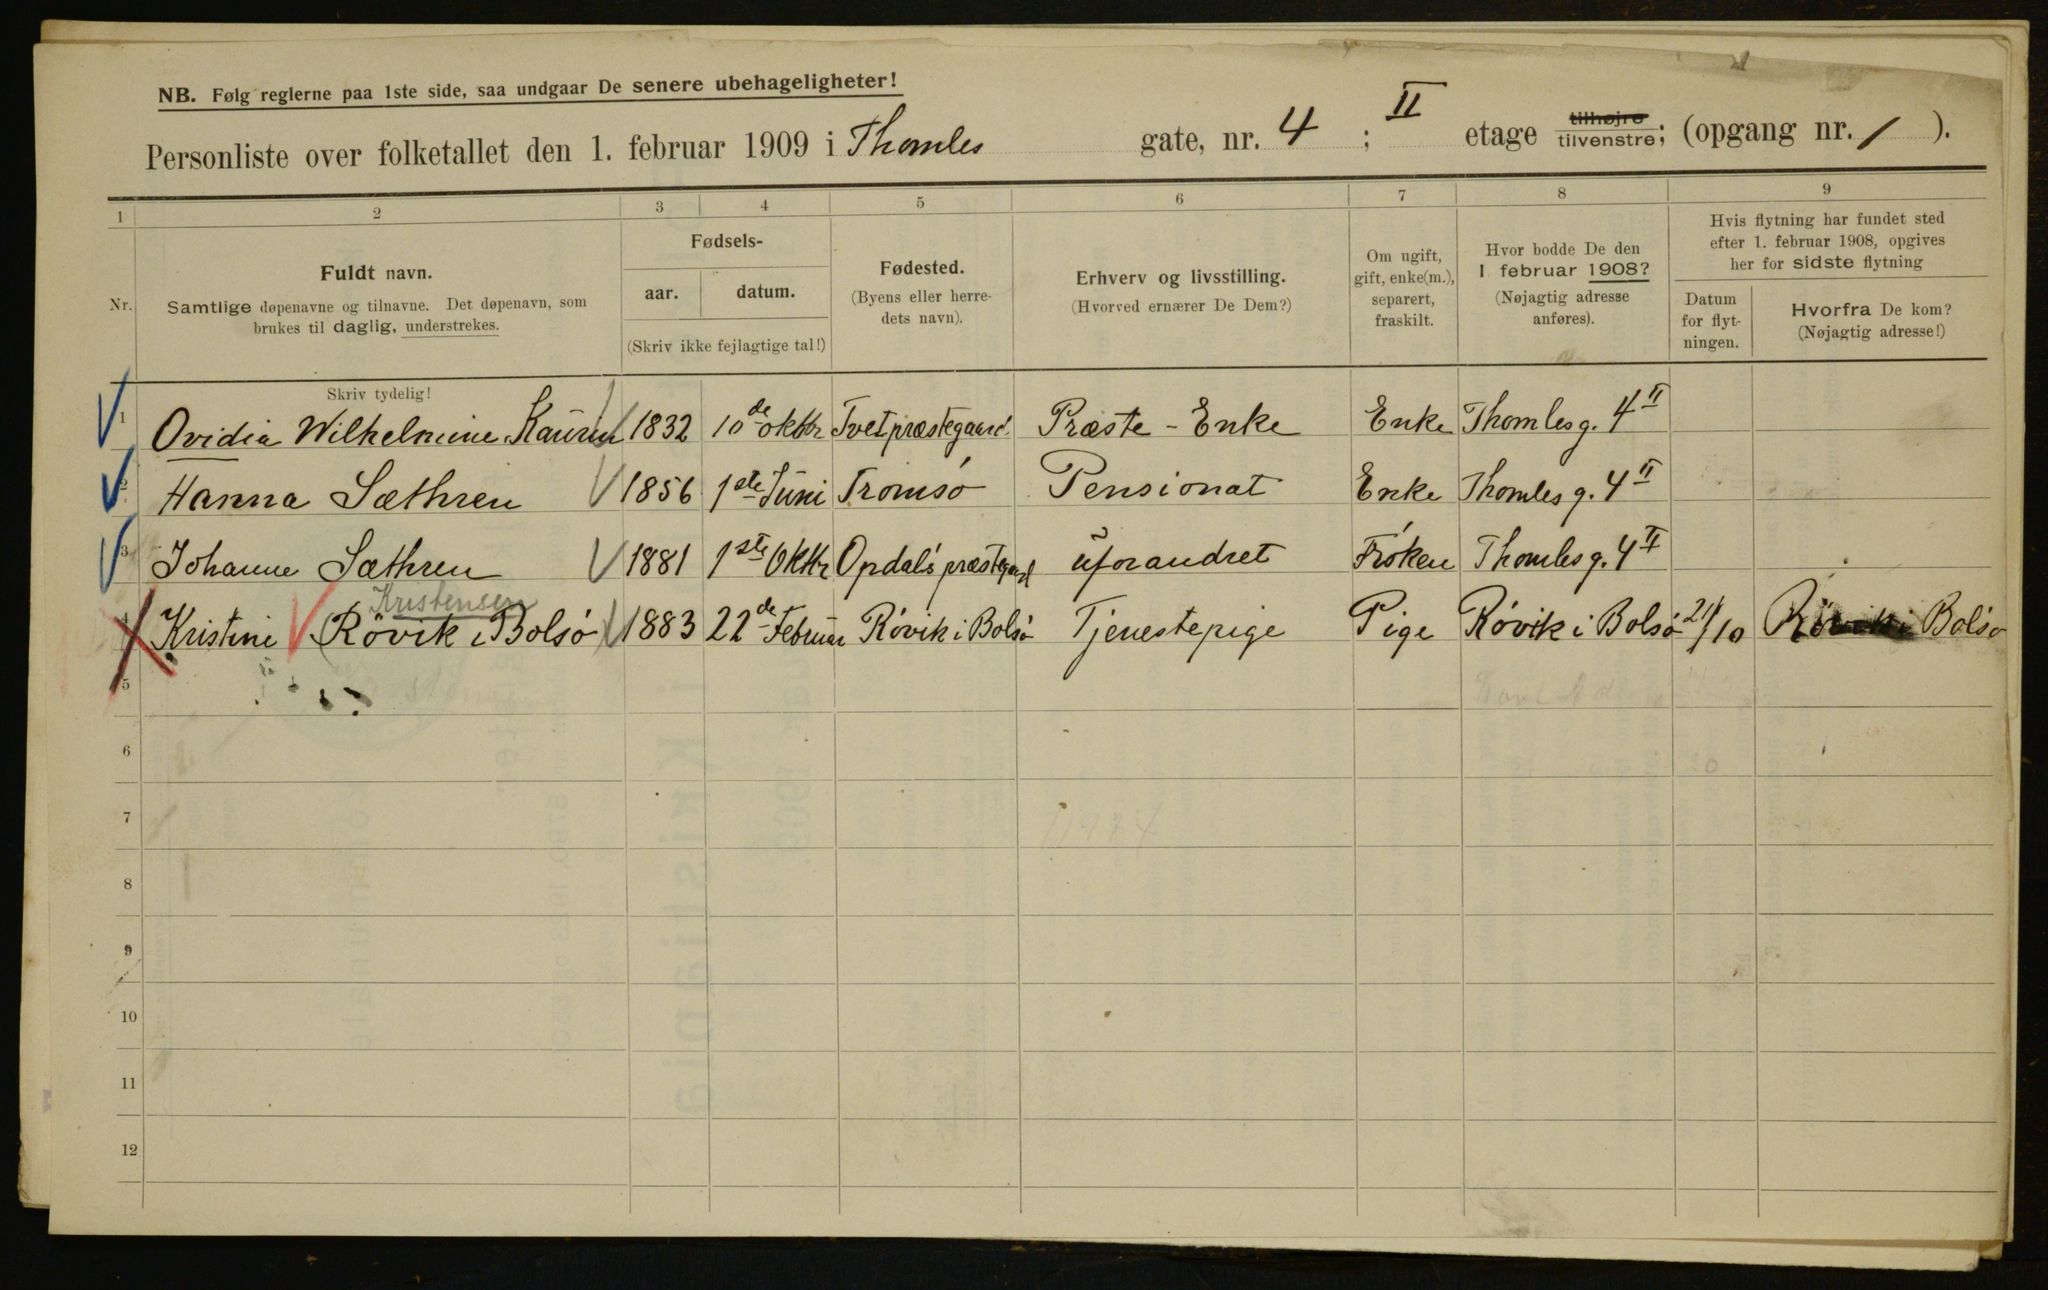 NB. Følg reglerne paa 1ste side, saa undgaar De senere ubehageligheter!
Personliste over folketallet den 1. februar 1909 i Thomles gate, nr. 4 ; II etage tilhøjre tilvenstre; (opgang nr. 1 ).
1 2 3 4 5 6 7 8 9
Nr.
Fuldt navn.
Samtlige døpenavne og tilnavne. Det døpenavn, som
brukes til daglig, understrekes.
Skriv tydelig!
Fødsels-
aar. datum.
(Skriv ikke fejlagtige tal!)
Fødested.
(Byens eller herre-
dets navn).
Erhverv og livsstilling.
(Hvorved ernærer De Dem?)
Om ugift,
gift, enke(m.),
separert,
fraskilt.
Hvor bodde De den
1 februar 1908?
(Nøjagtig adresse
anføres).
Hvis flytning har fundet sted
efter 1. februar 1908, opgives
her for sidste flytning
Datum
for flyt-
ningen.
Hvorfra De kom?
(Nøjagtig adresse!)
1 Ovidia Wilhelmine Kaurin 1832 10de oktbr Tvetpræstegaard. Præste - Enke Enke Thomles g. 4 II
2 Hanna Sæthren 1856 1ste Juni Tromsó Pensionat Enke Thomles g. 4 II
3 Johanne Sæthren 1881 1ste Oktbr Opdals præstegaard uforandret Fróken Thomles g. 4 II
Kristensen
4 Kristine (Róvik i Bolsó) 1883 22de Februar Róvik i Bolsó Tjenestepige Pige Róvik i Bolsó 21/10 Róvik i Bolsó
5
6
7
8
9
10
11
12